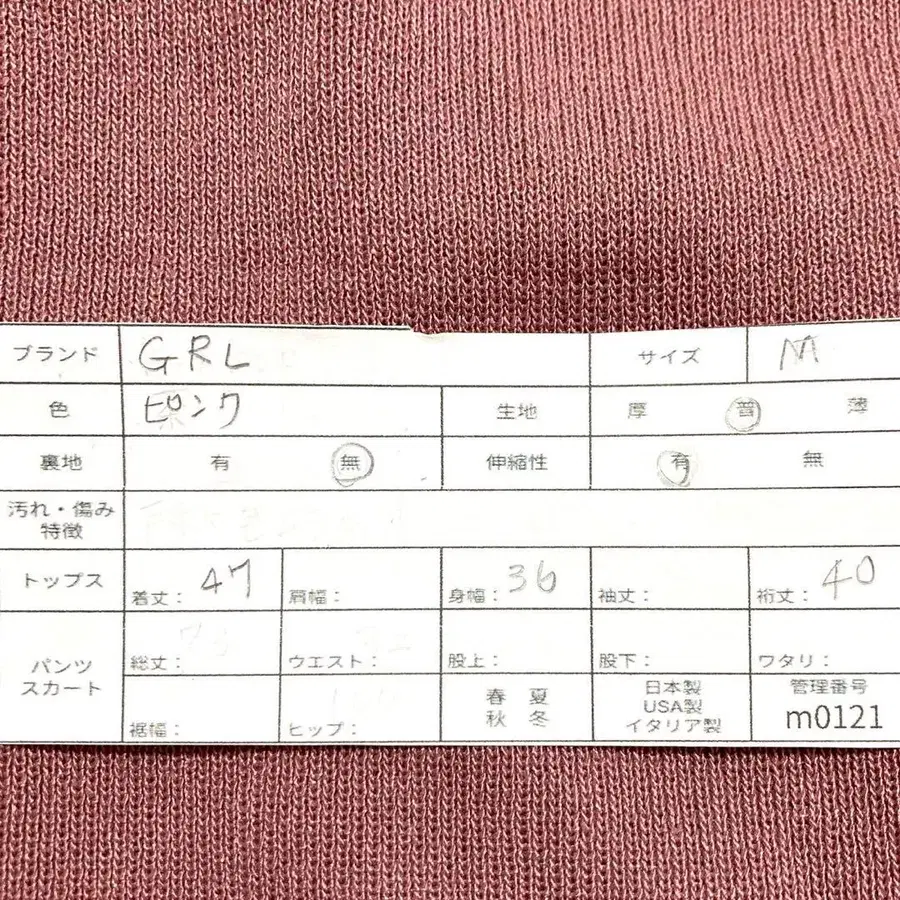 ブランド GRL サイズ M
色 ピンク 生地 厚 普 薄
裏地 有 無 伸縮性 有 無
汚れ・傷み
特徴
トップス 着丈: 47 肩幅: 身幅: 36 袖丈: 裄丈: 40
パンツ
スカート
総丈: ウエスト: 股上: 股下: ワタリ:
裾幅: ヒップ:
春 夏
秋 冬
日本製
USA製
イタリア製
管理番号
m0121